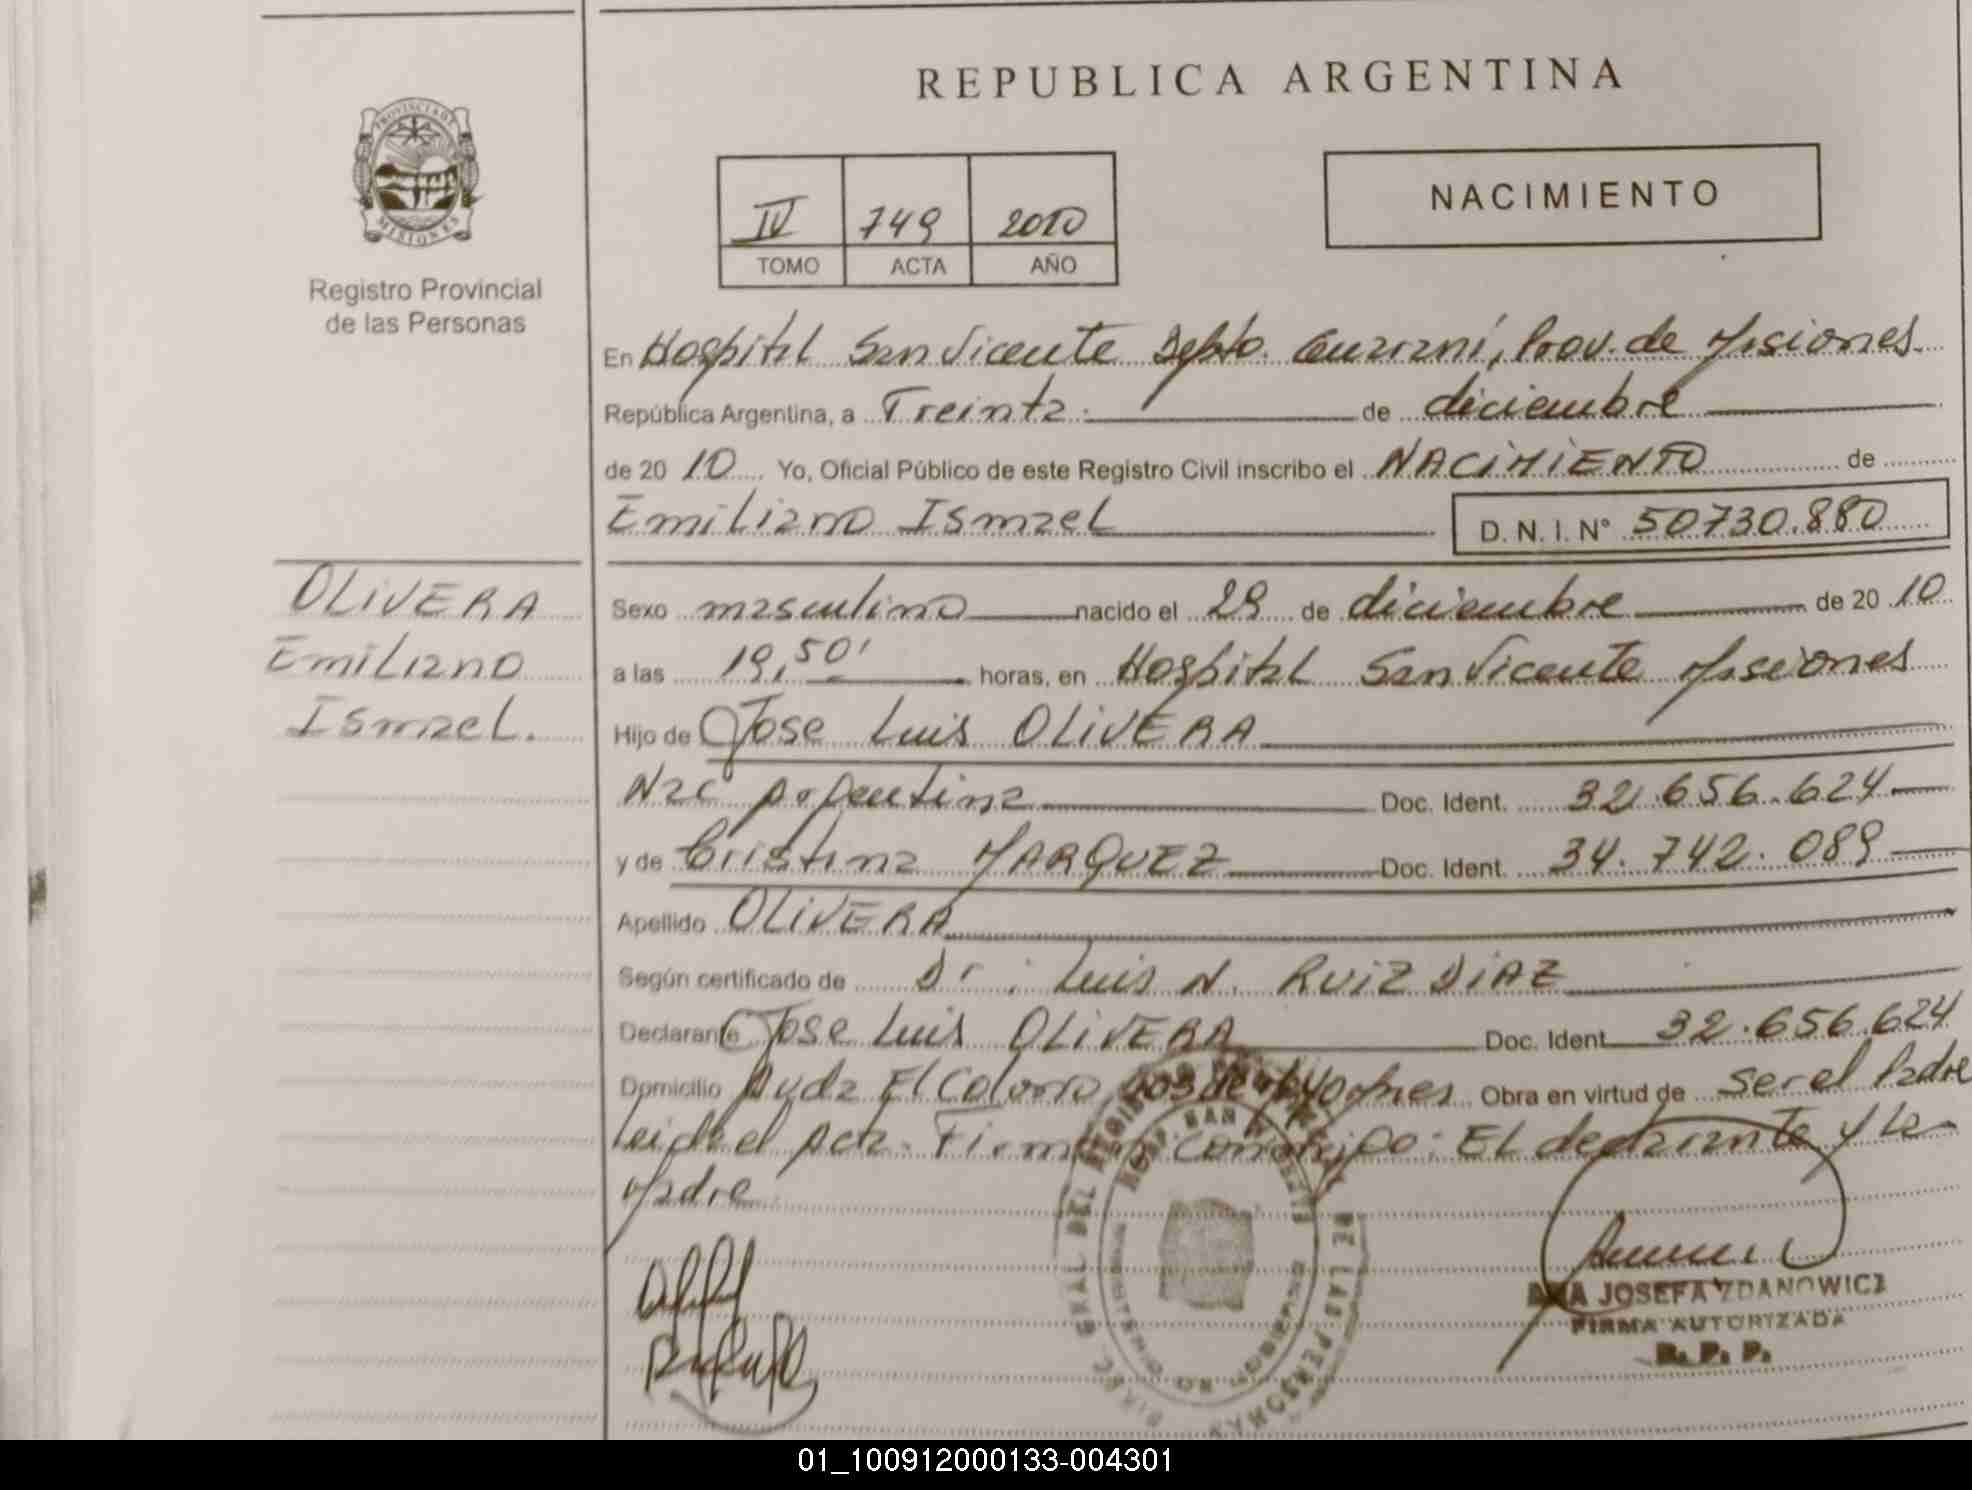 REPUBLICA ARGENTINA
PROVINCIA DE
MISIONES
Registro Provincial
de las Personas
IV 749 2010
TOMO ACTA AÑO
NACIMIENTO
En Hospital San Vicente Depto. Guaraní, Prov. de Misiones
República Argentina, a Treinta de diciembre
de 2010 Yo, Oficial Público de este Registro Civil inscribo el NACIMIENTO de
Emiliano Ismael D. N. I. N° 50730.880
OLIVERA
Emiliano
Ismael.
Sexo masculino nacido el 29 de diciembre de 2010
a las 19,50' horas, en Hospital San Vicente Misiones
Hijo de Jose Luis OLIVERA
Nac Argentina Doc. Ident. 32.656.624
y de Cristina MARQUEZ Doc. Ident. 34.742.089
Apellido OLIVERA
Según certificado de Dr. Luis N. RUIZ DIAZ
Declarante Jose Luis OLIVERA Doc. Ident. 32.656.624
Domicilio Avda El Colono Obra en virtud de ser el Padre
Leida el Acta. Firman conmigo: El declarante y la
Madre
ANA JOSEFA ZDANOWICZ
FIRMA AUTORIZADA
R. P. P.
DIREC. GRAL DEL REGISTRO DE LAS PERSONAS
HOSP. SAN VICENTE
01_100912000133-004301